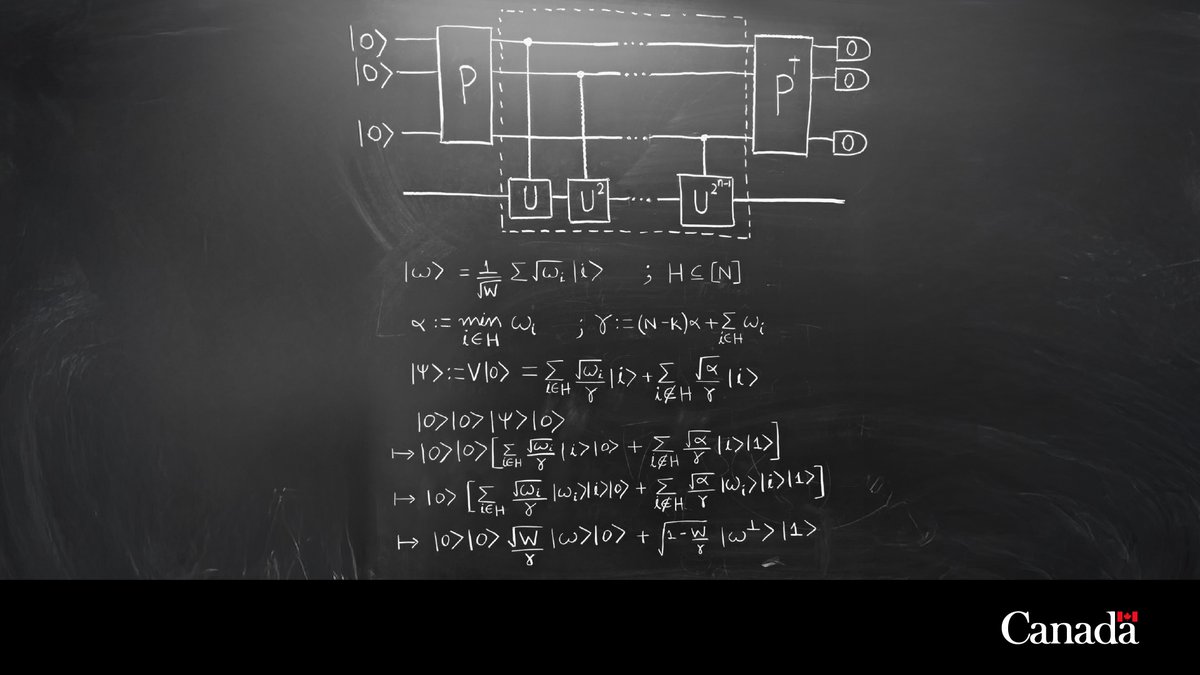 |0⟩ P P† 0
|0⟩ 0
|0⟩ 0
U U² ... U^{2^{n-1}}
|ω⟩ = 1/√W Σ √ω_i |i⟩ ; H ⊆ [N]
α := min_{i∈H} ω_i ; γ := (N-K)α + Σ_{i∈H} ω_i
|Ψ⟩ := V|0⟩ = Σ_{i∈H} √ω_i/γ |i⟩ + Σ_{i∉H} √α/γ |i⟩
|0⟩|0⟩|Ψ⟩|0⟩
↦ |0⟩|0⟩ [Σ_{i∈H} √ω_i/γ |i⟩|0⟩ + Σ_{i∉H} √α/γ |i⟩|1⟩]
↦ |0⟩ [Σ_{i∈H} √ω_i/γ |ω_i⟩|i⟩|0⟩ + Σ_{i∉H} √α/γ |ω_i⟩|i⟩|1⟩]
↦ |0⟩|0⟩ √W/γ |ω⟩|0⟩ + √(1-W/γ) |ω^⊥⟩|1⟩
Canada